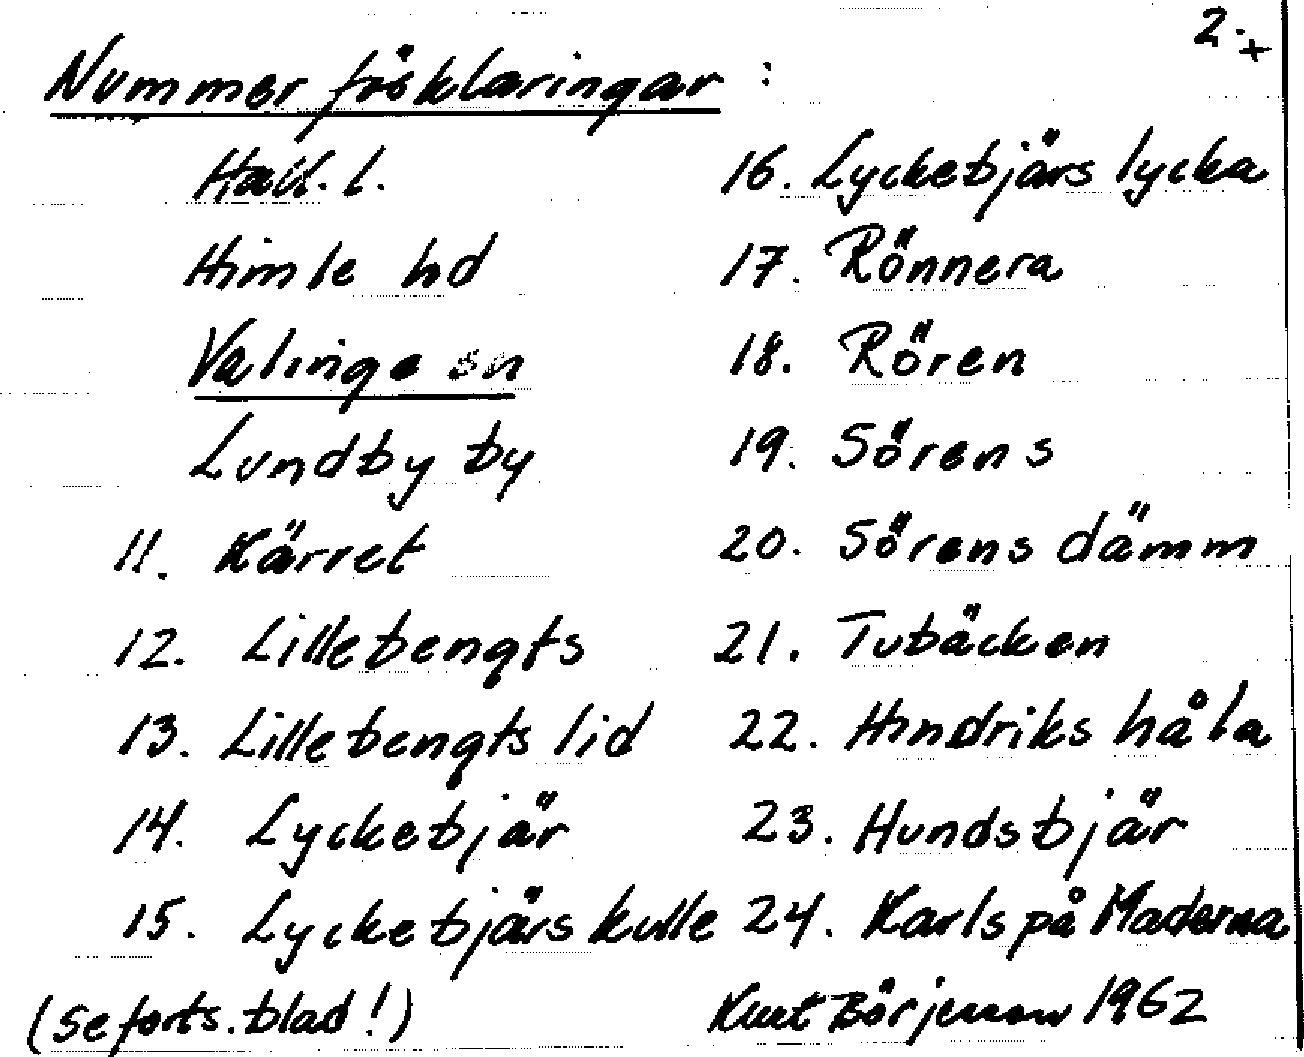 2.
Nummerförklaringar:
Hall. l.
Himle hd
Valinge sn
Lundby by
11. Kärret
12. Lillebengts
13. Lillebengts lid
14. Lyckebjär
15. Lyckebjärs kulle
(se forts. blad!)
16. Lyckebjärs lycka
17. Rönnera
18. Rören
19. Sörens
20. Sörens dämm
21. Tubäcken
22. Hindriks håla
23. Hundsbjär
24. Karls på Maderna
Kurt Börjesson 1962